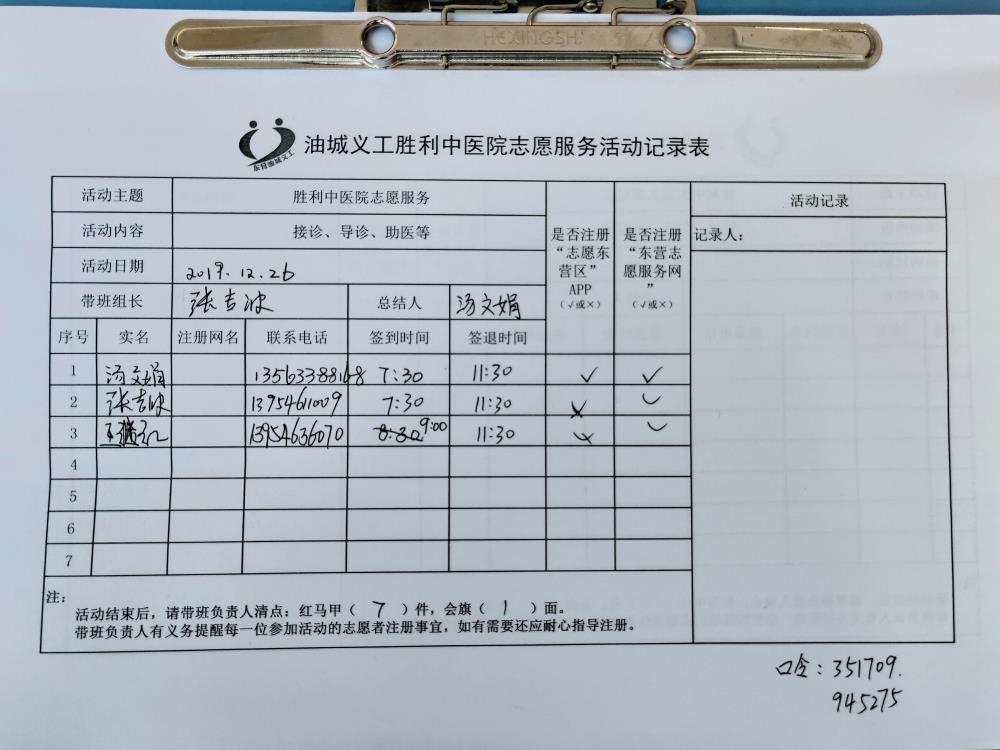 HEXINGSH
东营油城义工
油城义工胜利中医院志愿服务活动记录表
活动主题 胜利中医院志愿服务
活动内容 接诊、导诊、助医等
活动日期 2019.12.26
带班组长 张吉波 总结人 汤文娟
是否注册“志愿东营区”APP（√或×）
是否注册“东营志愿服务网”（√或×）
活动记录
记录人：
序号 实名 注册网名 联系电话 签到时间 签退时间
1 汤文娟 13563388168 7:30 11:30 √ √
2 张吉波 13954611009 7:30 11:30 × √
3 13954636070 8:30 9:00 11:30 × √
4
5
6
7
注：
活动结束后，请带班负责人清点：红马甲（ 7 ）件，会旗（ 1 ）面。
带班负责人有义务提醒每一位参加活动的志愿者注册事宜，如有需要还应耐心指导注册。
口令：351709.
945275